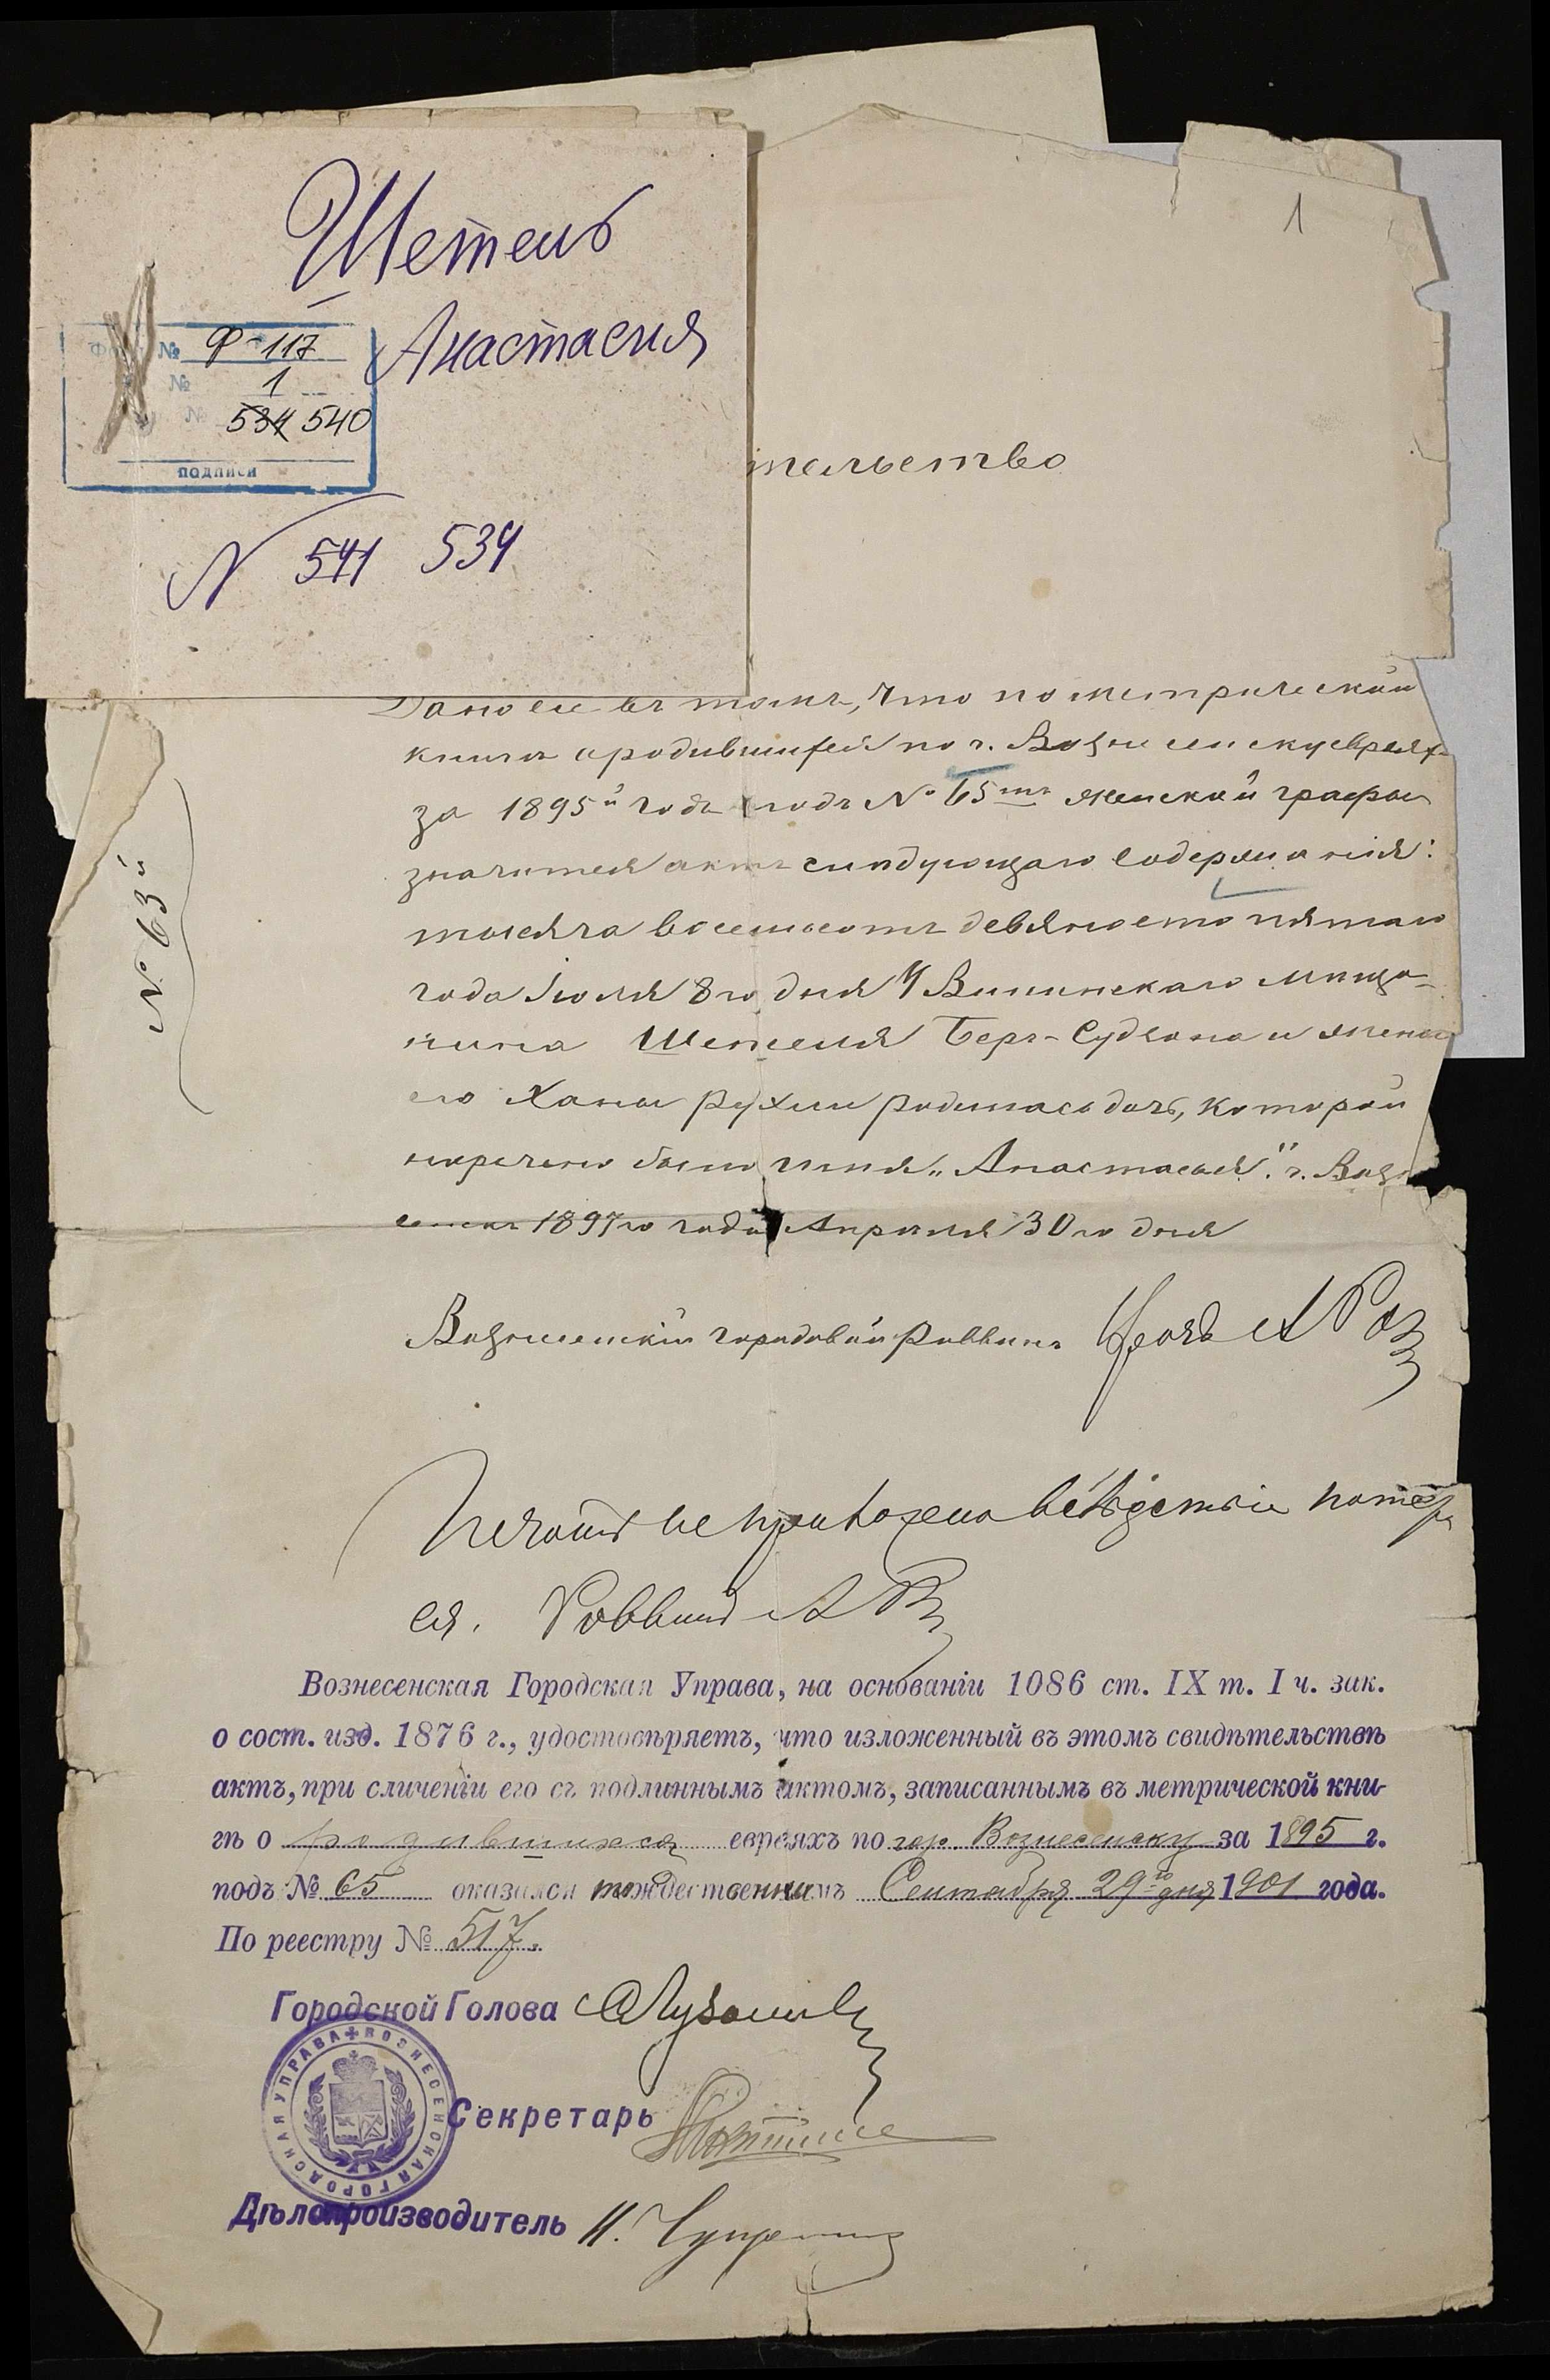 Шетель
Анастасия
№ Ф-117
№ 1
№ 534 540
подписи
N 541 534
1
тельство
№ 63й
Дано сіе въ томъ, что по метрической
книгѣ о родившихся по г. Вознесенску евреяхъ
за 1895й годъ подъ № 65мъ женской графы
значится актъ слѣдующаго содержанія:
тысяча восемьсотъ девяносто пятаго
года Іюля 8го дня у мѣща-
нина Шетеля Беръ- и жены
его Ханы Рухли родилась дочь, которой
наречено было имя „Анастасья". г. Возне
сенскъ 1897го года Апрѣля 30го дня
Вознесенскій городовой Раввинъ
Печать не приложена вслѣдствіе потер
ея. Раввинъ
Вознесенская Городская Управа, на основаніи 1086 ст. IX т. I ч. зак.
о сост. изд. 1876 г., удостовѣряетъ, что изложенный въ этомъ свидѣтельствѣ
актъ, при сличеніи его съ подлиннымъ актомъ, записаннымъ въ метрической кни-
гѣ о родившихся евреяхъ по гор. Вознесенску за 1895 г.
подъ № 65 оказался тождественнымъ Сентября 29го дня 1901 года.
По реестру № 517.
Городской Голова
ВОЗНЕСЕНСКАЯ ГОРОДСКАЯ УПРАВА
Секретарь
Дѣлопроизводитель